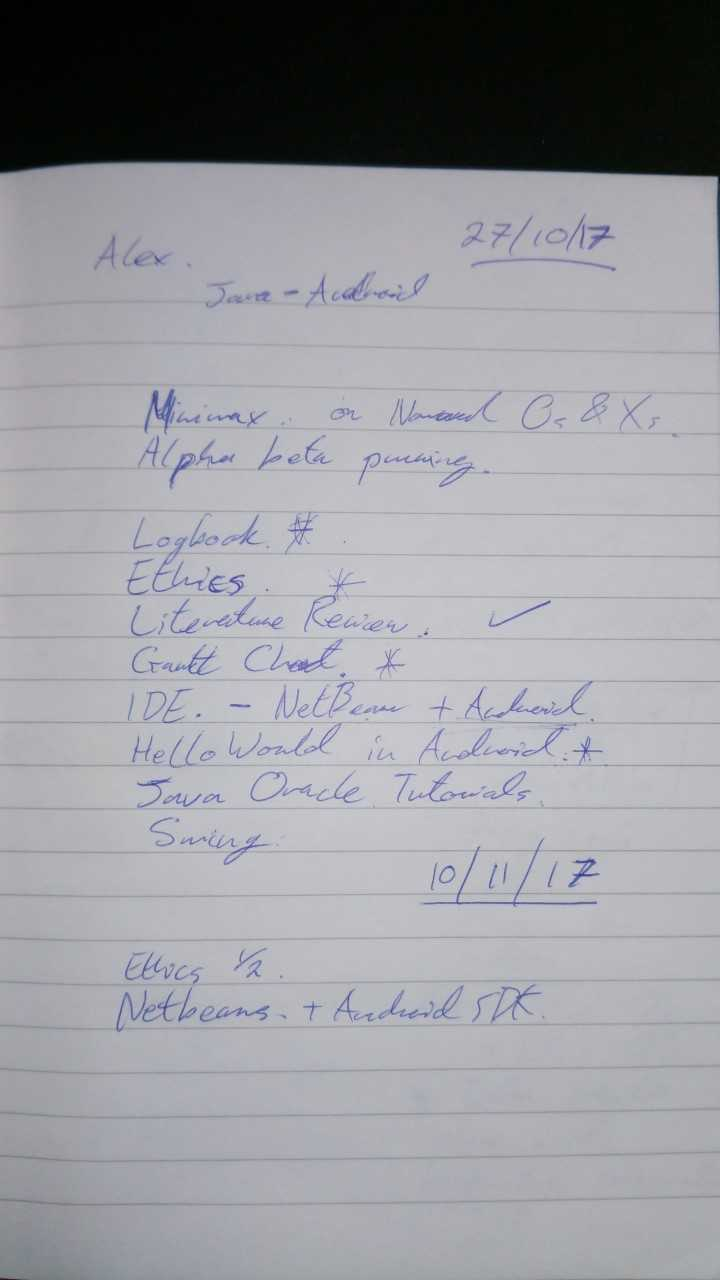 27/10/17
Alex.
Java - Android
Minimax. on Os & Xs.
Alpha beta pruning.
Logbook. *
Ethics. *
Literature Review. ✓
Gantt Chart. *
IDE. - NetBeans + Android.
Hello World in Android. *
Java Oracle Tutorials.
Swing.
10/11/17
Ethics 1/2.
Netbeans. + Android SDK.